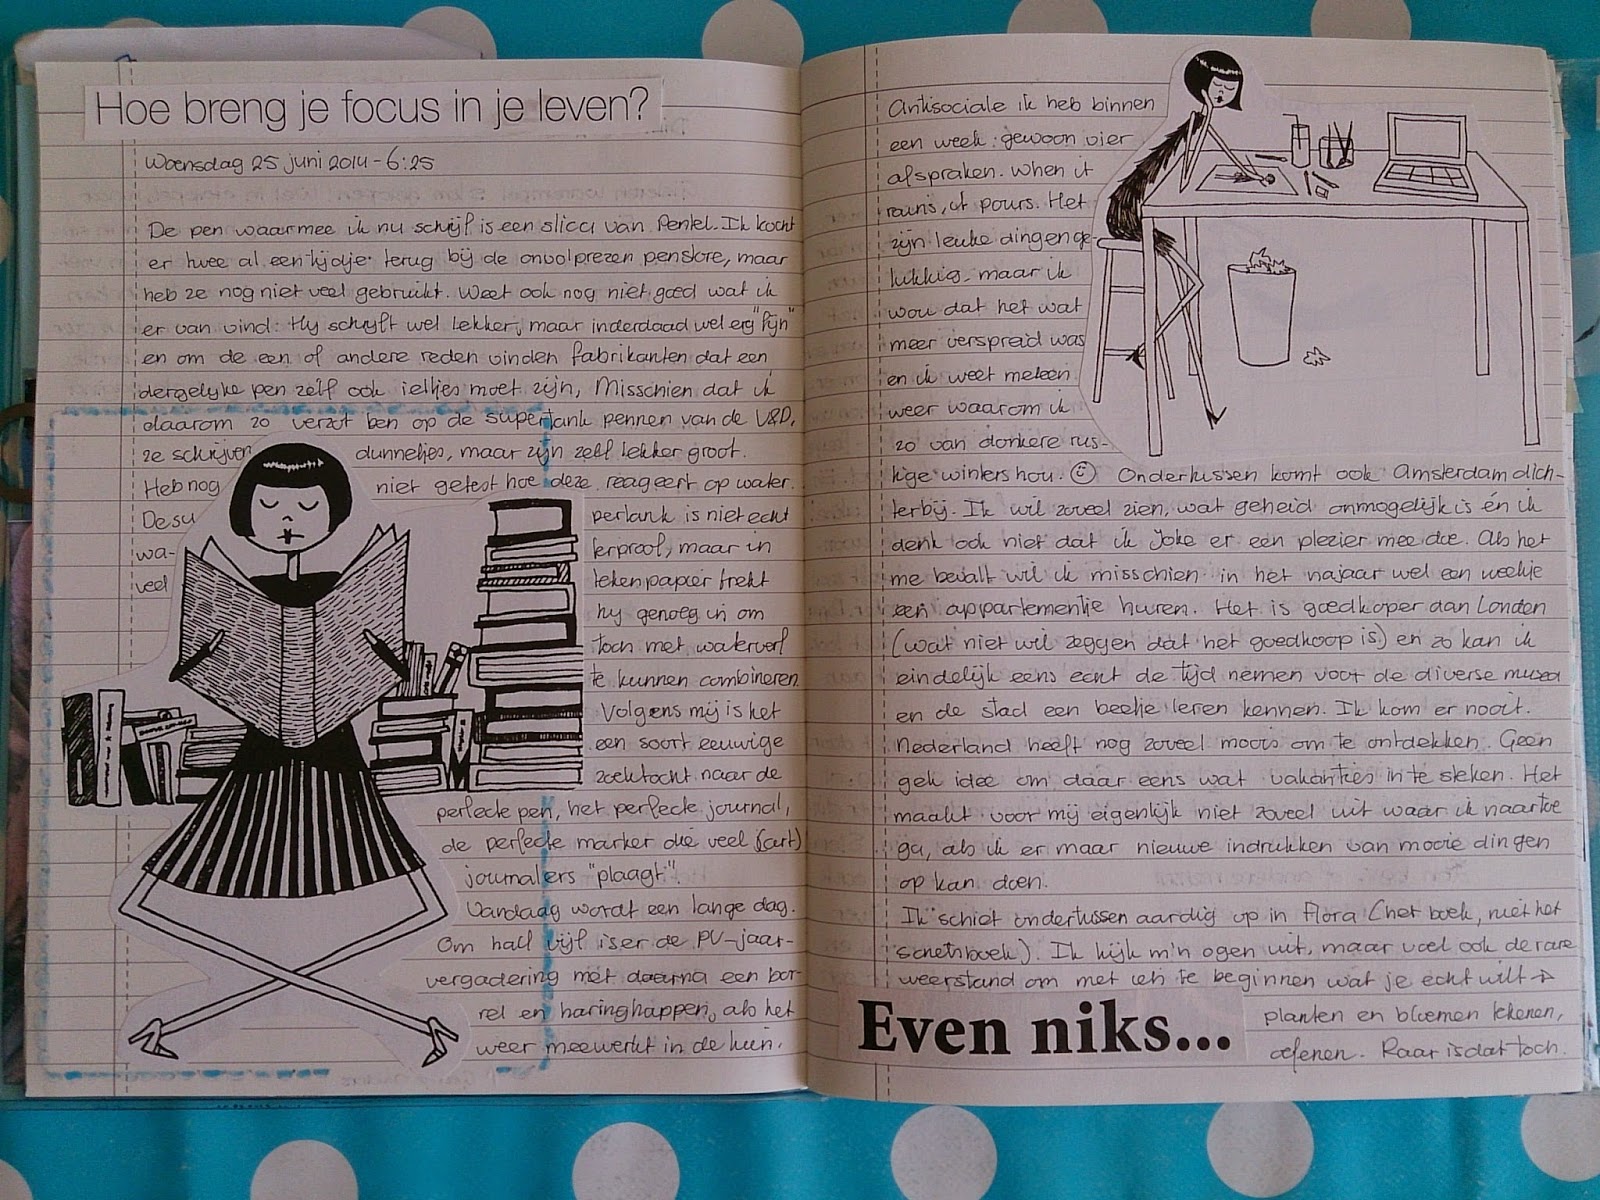 Hoe breng je focus in je leven?
Woensdag 25 juni 2014 - 6:25
De pen waarmee ik nu schrijf is een slicci van Pentel. Ik kocht
er twee al een tijdje terug bij de onvolprezen penstore, maar
heb ze nog niet veel gebruikt. Weet ook nog niet goed wat ik
er van vind. Hij schrijft wel lekker, maar inderdaad wel erg "fijn"
en om de een of andere reden vinden fabrikanten dat een
dergelijke pen zelf ook ieltjes moet zijn, Misschien dat ik
daarom zo verzot ben op de supertank pennen van de V&D,
ze schrijven dunnetjes, maar zijn zelf lekker groot.
Heb nog niet getest hoe deze reageert op water.
De supertank is niet echt
wa-terproof, maar in
veel tekenpapier trekt
hij genoeg in om
toch met waterverf
te kunnen combineren.
Volgens mij is het
een soort eeuwige
zoektocht naar de
perfecte pen, het perfecte journal,
de perfecte marker die veel (art)
journalers "plaagt".
Vandaag wordt een lange dag.
Om half vijf is er de PV-jaar-
vergadering met daarna een bor-
rel en haringhappen, als het
weer meewerkt in de tuin.
Antisociale ik heb binnen
een week: gewoon vier
afspraken. When it
rains, it pours. Het
zijn leuke dingen ge-
lukkig, maar ik
wou dat het wat
meer verspreid was
en ik weet meteen
weer waarom ik
zo van donkere rus-
tige winters hou. ☺ Ondertussen komt ook Amsterdam dich-
terbij. Ik wil zoveel zien, wat geheid onmogelijk is én ik
denk ook niet dat ik Joke er een plezier mee doe. Als het
me bevalt wil ik misschien in het najaar wel een weekje
een appartementje huren. Het is goedkoper dan Londen
(wat niet wil zeggen dat het goedkoop is) en zo kan ik
eindelijk eens echt de tijd nemen voor de diverse musea
en de stad een beetje leren kennen. Ik kom er nooit.
Nederland heeft nog zoveel moois om te ontdekken. Geen
gek idee om daar eens wat vakanties in te steken. Het
maakt voor mij eigenlijk niet zoveel uit waar ik naartoe
ga, als ik er maar nieuwe indrukken van mooie dingen
op kan doen.
Ik schiet ondertussen aardig op in Flora (het boek, niet het
schetsboek). Ik kijk m'n ogen uit, maar voel ook de rare
weerstand om met iets te beginnen wat je echt wilt →
planten en bloemen tekenen,
oefenen. Raar is dat toch.
Even niks...